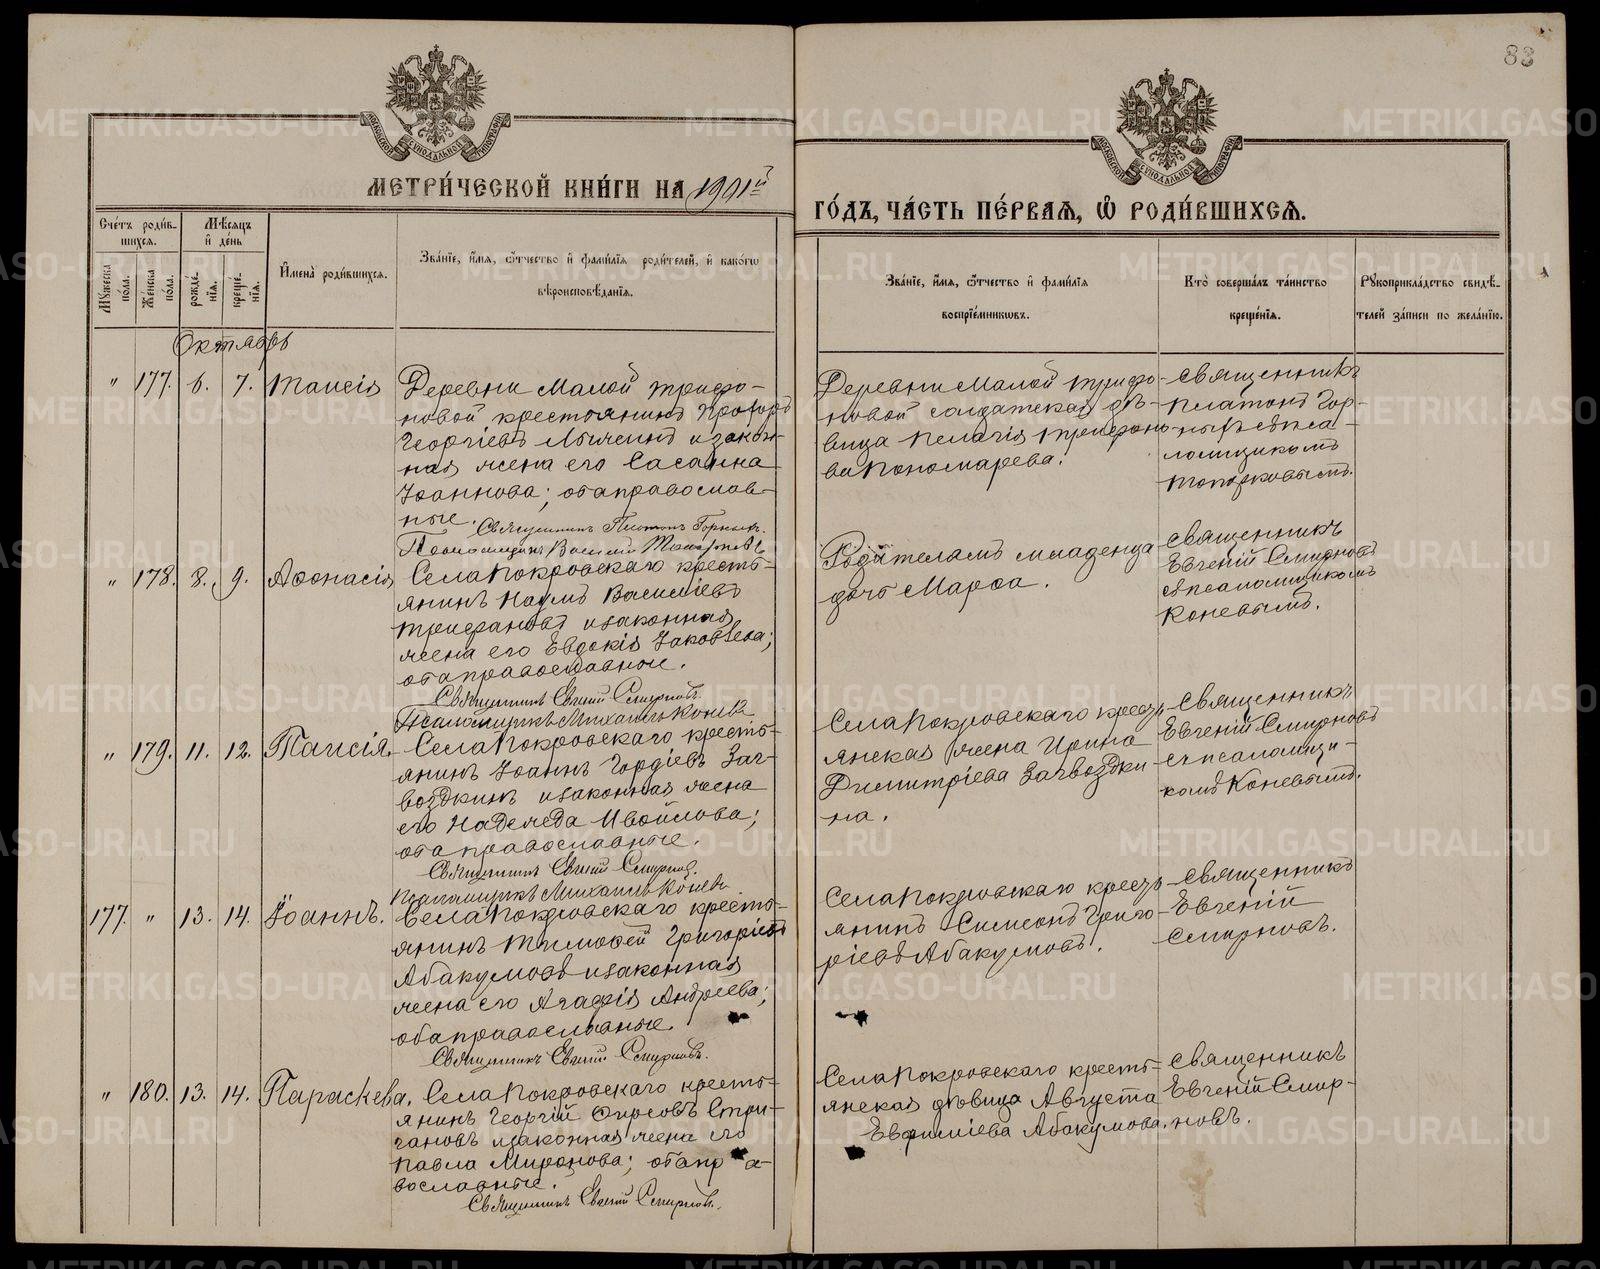 83
МОСКОВСКОЙ СѴНОДАЛЬНОЙ ТИПОГРАФІИ
МОСКОВСКОЙ СѴНОДАЛЬНОЙ ТИПОГРАФІИ
МЕТРИ́ЧЕСКОЙ КНИ́ГИ НА 1901й
ГО́ДЪ, ЧА́СТЬ ПЕ́РВАѦ, Ѡ҆ РОДИ́ВШИХСѦ.
Сче́тъ роди́в-
шихся.
Мѣ́сяцъ
и҆ де́нь
Му́жеска
по́ла.
Же́нска
по́ла.
рожде́-
нїѧ.
креще́-
нїѧ.
И҆мена̀ роди́вшихсѧ.
Зва́нїе, и҆́мѧ, ѻ҆́тчество и҆ фами́лїѧ роди́телей, и҆ како́гѡ
вѣроисповѣ́данїѧ.
Зва́нїе, и҆́мѧ, ѻ҆́тчество и҆ фами́лїѧ
воспрїе́мникѡвъ.
Кто̀ соверша́лъ та́инство
креще́нїѧ.
Рꙋкоприкла́дство свидѣ́-
телей за́писи по жела́нїю.
Октябрь
" 177. 6. 7. Таисія
Деревни Малой Трифо-
новой крестьянинъ Прохоръ
Георгіевъ и закон-
ная жена его Сасанна
Іоаннова; оба православ-
ные.
Священникъ Платонъ Горныхъ.
Псаломщикъ Василій Топорковъ
Деревни Малой Трифо-
новой солдатская дѣ-
вица Пелагія Трифоно-
ва Пономарева.
Священникъ
Платонъ Гор-
ныхъ съ пса-
ломщикомъ
Топорковымъ.
" 178. 8. 9. Аѳонасія
Села Покровскаго кресть-
янинъ Наумъ Василіевъ
Трифановъ и законная
жена его Евдокія Іаковлева;
оба православные.
Священникъ Евгеній Смирновъ.
Псаломщикъ Михаилъ Коневъ
Родителямъ младенца
дочь Марѳа.
Священникъ
Евгеній Смирновъ
съ псаломщикомъ
Коневымъ.
" 179. 11. 12. Таисія.
Села Покровскаго кресть-
янинъ Іоаннъ Гордіевъ Заг-
воздкинъ и законная жена
его Надежда Измоилова;
оба православные.
Священникъ Евгеній Смирновъ.
Псаломщикъ Михаилъ Коневъ
Села Покровскаго кресть-
янская жена Ирина
Димитріева Загвоздки-
на.
Священникъ
Евгеній Смирновъ
съ псаломщи-
комъ Коневымъ.
177. " 13. 14. Іоаннъ.
Села Покровскаго кресть-
янинъ Тимоѳей Григоріевъ
Абакумовъ и законная
жена его Агафія Андреева;
оба православные.
Священникъ Евгеній Смирновъ.
Села Покровскаго кресть-
янинъ Симеонъ Григо-
ріевъ Абакумовъ.
Священникъ
Евгеній
Смирновъ.
" 180. 13. 14. Параскева.
Села Покровскаго кресть-
янинъ Георгій Ѳирсовъ Стри-
гановъ и законная жена его
Павла Миронова; оба пра-
вославные.
Священникъ Евгеній Смирновъ.
Села Покровскаго кресть-
янская дѣвица Августа
Евфиміева Абакумова.
Священникъ
Евгеній Смир-
новъ.
METRIKI.GASO-URAL.RU